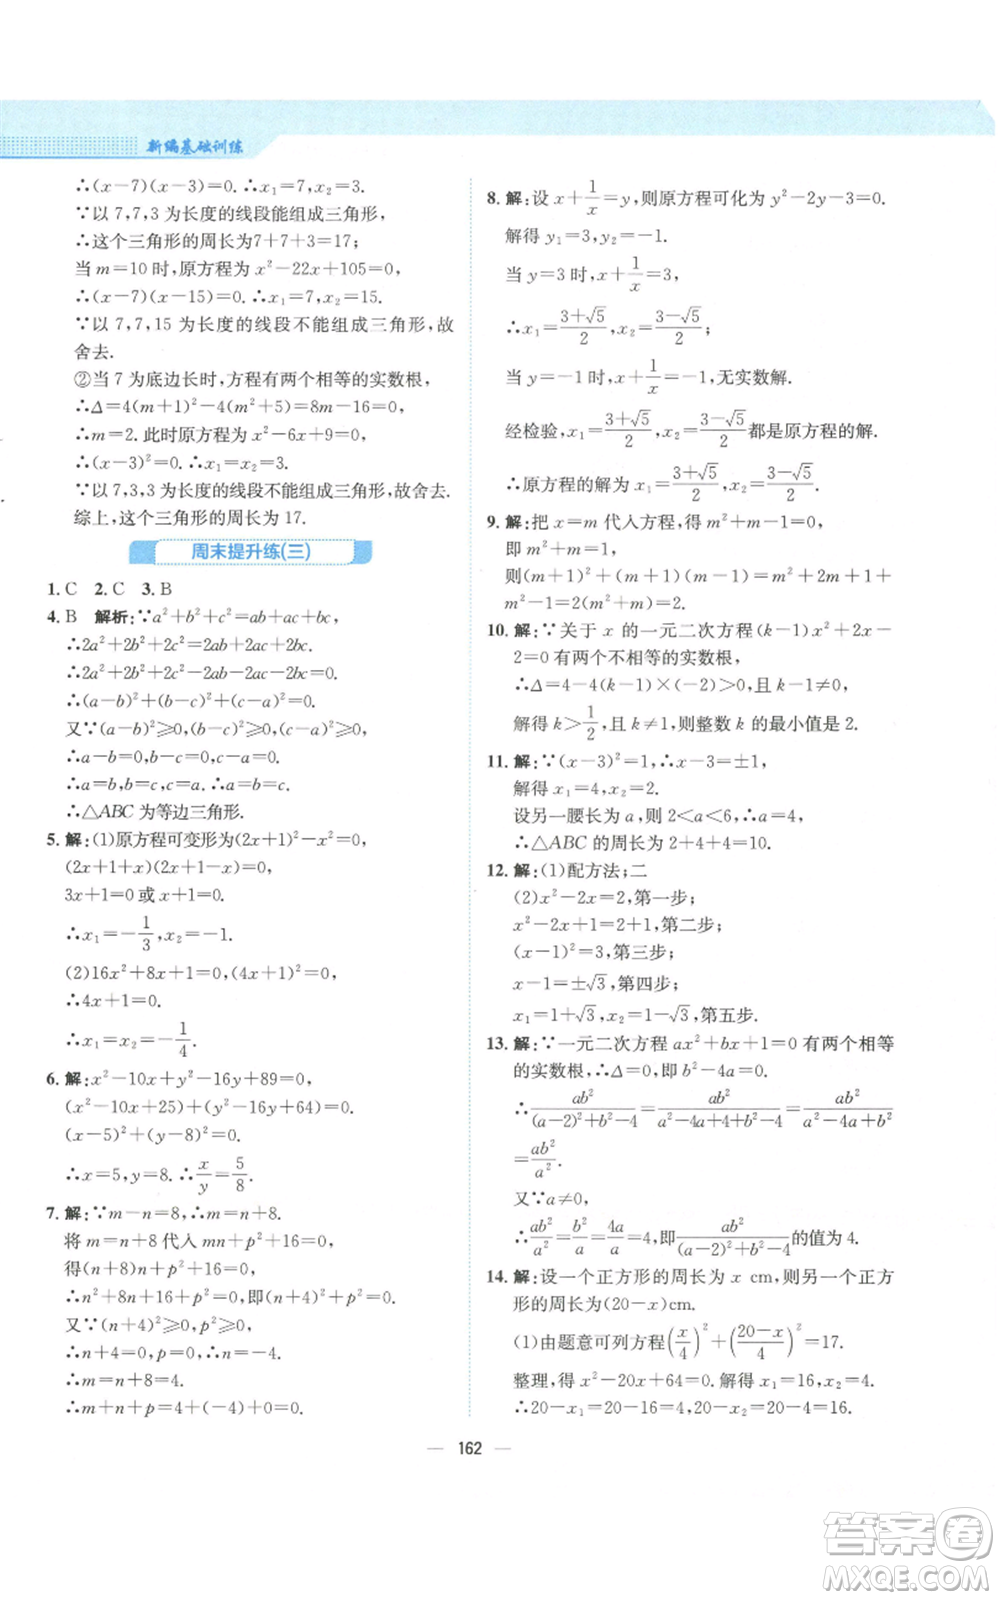 新编基础训练
∴(x-7)(x-3)=0. ∴x₁=7,x₂=3.
∵以 7,7,3 为长度的线段能组成三角形,
∴这个三角形的周长为7+7+3=17;
当 m=10 时,原方程为 x²-22x+105=0,
∴(x-7)(x-15)=0. ∴x₁=7,x₂=15.
∵以 7,7,15 为长度的线段不能组成三角形,故
舍去.
②当 7 为底边长时,方程有两个相等的实数根,
∴Δ=4(m+1)²-4(m²+5)=8m-16=0,
∴m=2. 此时原方程为 x²-6x+9=0,
∴(x-3)²=0. ∴x₁=x₂=3.
∵以 7,3,3 为长度的线段不能组成三角形,故舍去.
综上,这个三角形的周长为 17.
周末提升练(三)
1. C 2. C 3. B
4. B 解析:∵a²+b²+c²=ab+ac+bc,
∴2a²+2b²+2c²=2ab+2ac+2bc.
∴2a²+2b²+2c²-2ab-2ac-2bc=0.
∴(a-b)²+(b-c)²+(c-a)²=0.
又∵(a-b)²≥0,(b-c)²≥0,(c-a)²≥0,
∴a-b=0,b-c=0,c-a=0.
∴a=b,b=c,c=a. ∴a=b=c.
∴△ABC 为等边三角形.
5. 解:(1)原方程可变形为(2x+1)²-x²=0,
(2x+1+x)(2x+1-x)=0,
3x+1=0 或 x+1=0.
∴x₁=-1/3,x₂=-1.
(2)16x²+8x+1=0,(4x+1)²=0,
∴4x+1=0.
∴x₁=x₂=-1/4.
6. 解:x²-10x+y²-16y+89=0,
(x²-10x+25)+(y²-16y+64)=0,
(x-5)²+(y-8)²=0.
∴x=5,y=8. ∴x/y=5/8.
7. 解:∵m-n=8,∴m=n+8.
将 m=n+8 代入 mn+p²+16=0,
得(n+8)n+p²+16=0,
∴n²+8n+16+p²=0,即(n+4)²+p²=0.
又∵(n+4)²≥0,p²≥0,
∴n+4=0,p=0,∴n=-4.
∴m=n+8=4.
∴m+n+p=4+(-4)+0=0.
8. 解:设 x+1/x=y,则原方程可化为 y²-2y-3=0.
解得 y₁=3,y₂=-1.
当 y=3 时,x+1/x=3,
∴x₁=(3+√5)/2,x₂=(3-√5)/2;
当 y=-1 时,x+1/x=-1,无实数解.
经检验,x₁=(3+√5)/2,x₂=(3-√5)/2都是原方程的解.
∴原方程的解为 x₁=(3+√5)/2,x₂=(3-√5)/2.
9. 解:把 x=m 代入方程,得 m²+m-1=0,
即 m²+m=1.
则(m+1)²+(m+1)(m-1)=m²+2m+1+
m²-1=2(m²+m)=2.
10. 解:∵关于 x 的一元二次方程(k-1)x²+2x-
2=0 有两个不相等的实数根,
∴Δ=4-4(k-1)×(-2)>0,且 k-1≠0,
解得 k>1/2,且 k≠1,则整数 k 的最小值是 2.
11. 解:∵(x-3)²=1,∴x-3=±1,
解得 x₁=4,x₂=2.
设另一腰长为 a,则 2<a<6,∴a=4,
∴△ABC 的周长为 2+4+4=10.
12. 解:(1)配方法;二
(2)x²-2x=2,第一步;
x²-2x+1=2+1,第二步;
(x-1)²=3,第三步;
x-1=±√3,第四步;
x₁=1+√3,x₂=1-√3,第五步.
13. 解:∵一元二次方程 ax²+bx+1=0 有两个相等
的实数根,∴Δ=0,即 b²-4a=0.
∴ab²/((a-2)²+b²-4)=ab²/(a²-4a+4+b²-4)=ab²/(a²-4a+b²)
=ab²/a².
又∵a≠0,
∴ab²/a²=b²/a=4a/a=4,即ab²/((a-2)²+b²-4)的值为 4.
14. 解:设一个正方形的周长为 x cm,则另一个正方
形的周长为(20-x)cm.
(1)由题意可列方程(x/4)²+((20-x)/4)²=17.
整理,得 x²-20x+64=0. 解得 x₁=16,x₂=4.
∴20-x₁=20-16=4,20-x₂=20-4=16.
162
答案卷
MXQE.COM